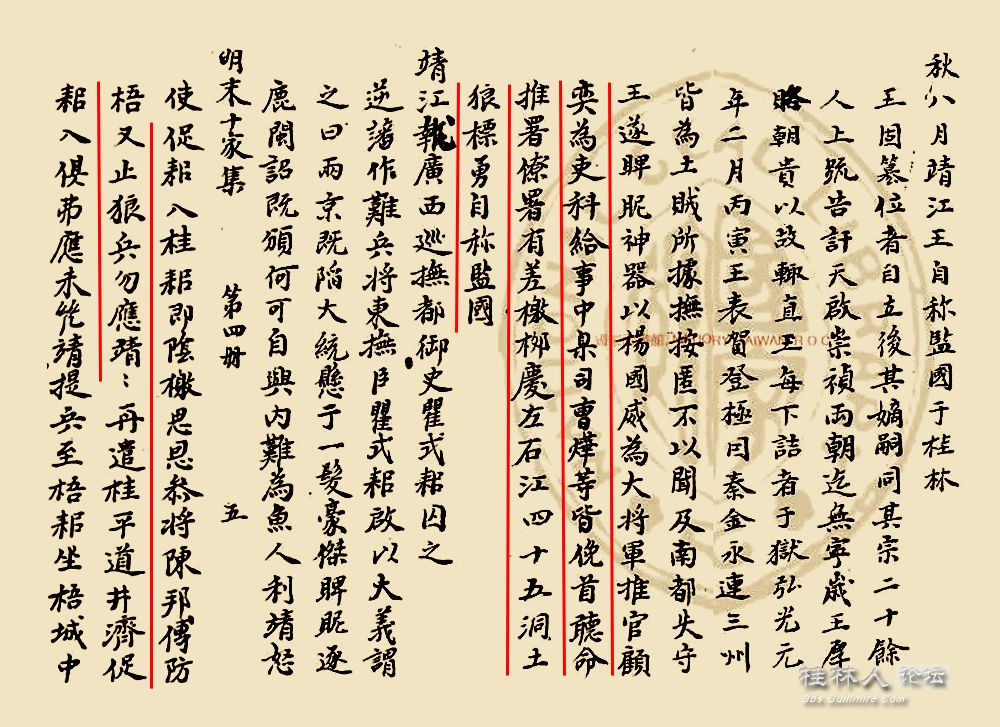 秋八月靖江王自称監國于桂林
王固簒位者自立後其嫡嗣同其宗二十餘
人上號告訐天啟崇禎両朝迄無寧歲王厚
賂朝貴以故輒直王每下詰者于獄弘光元
年二月丙寅王表賀登極曰秦金永連三州
皆為土賊所據撫按匿不以聞及南都失守
王遂睥睨神器以楊國威為大将軍推官顧
奕為吏科給事中臬司曹燁等皆俛首聽命
推署僚署有差檄栁慶左石江四十五洞土
狼標勇自称監國
靖江執廣西巡撫都御史瞿式耜囚之
逆藩作難兵将東撫臣瞿式耜啟以大義謂
之曰両京既陷大統懸于一髮豪傑睥睨逐
鹿閩詔既頒何可自興内難為魚人利靖怒
明末十家集 第四册 五
使促耜入桂耜即陰檄思恩叅将陳邦傅防
梧又止狼兵勿應靖:再遣桂平道井濟促
耜入俱弗應未㡬靖提兵至梧耜坐梧城中
桂林人 论坛
Bbs.Guilinlife.com